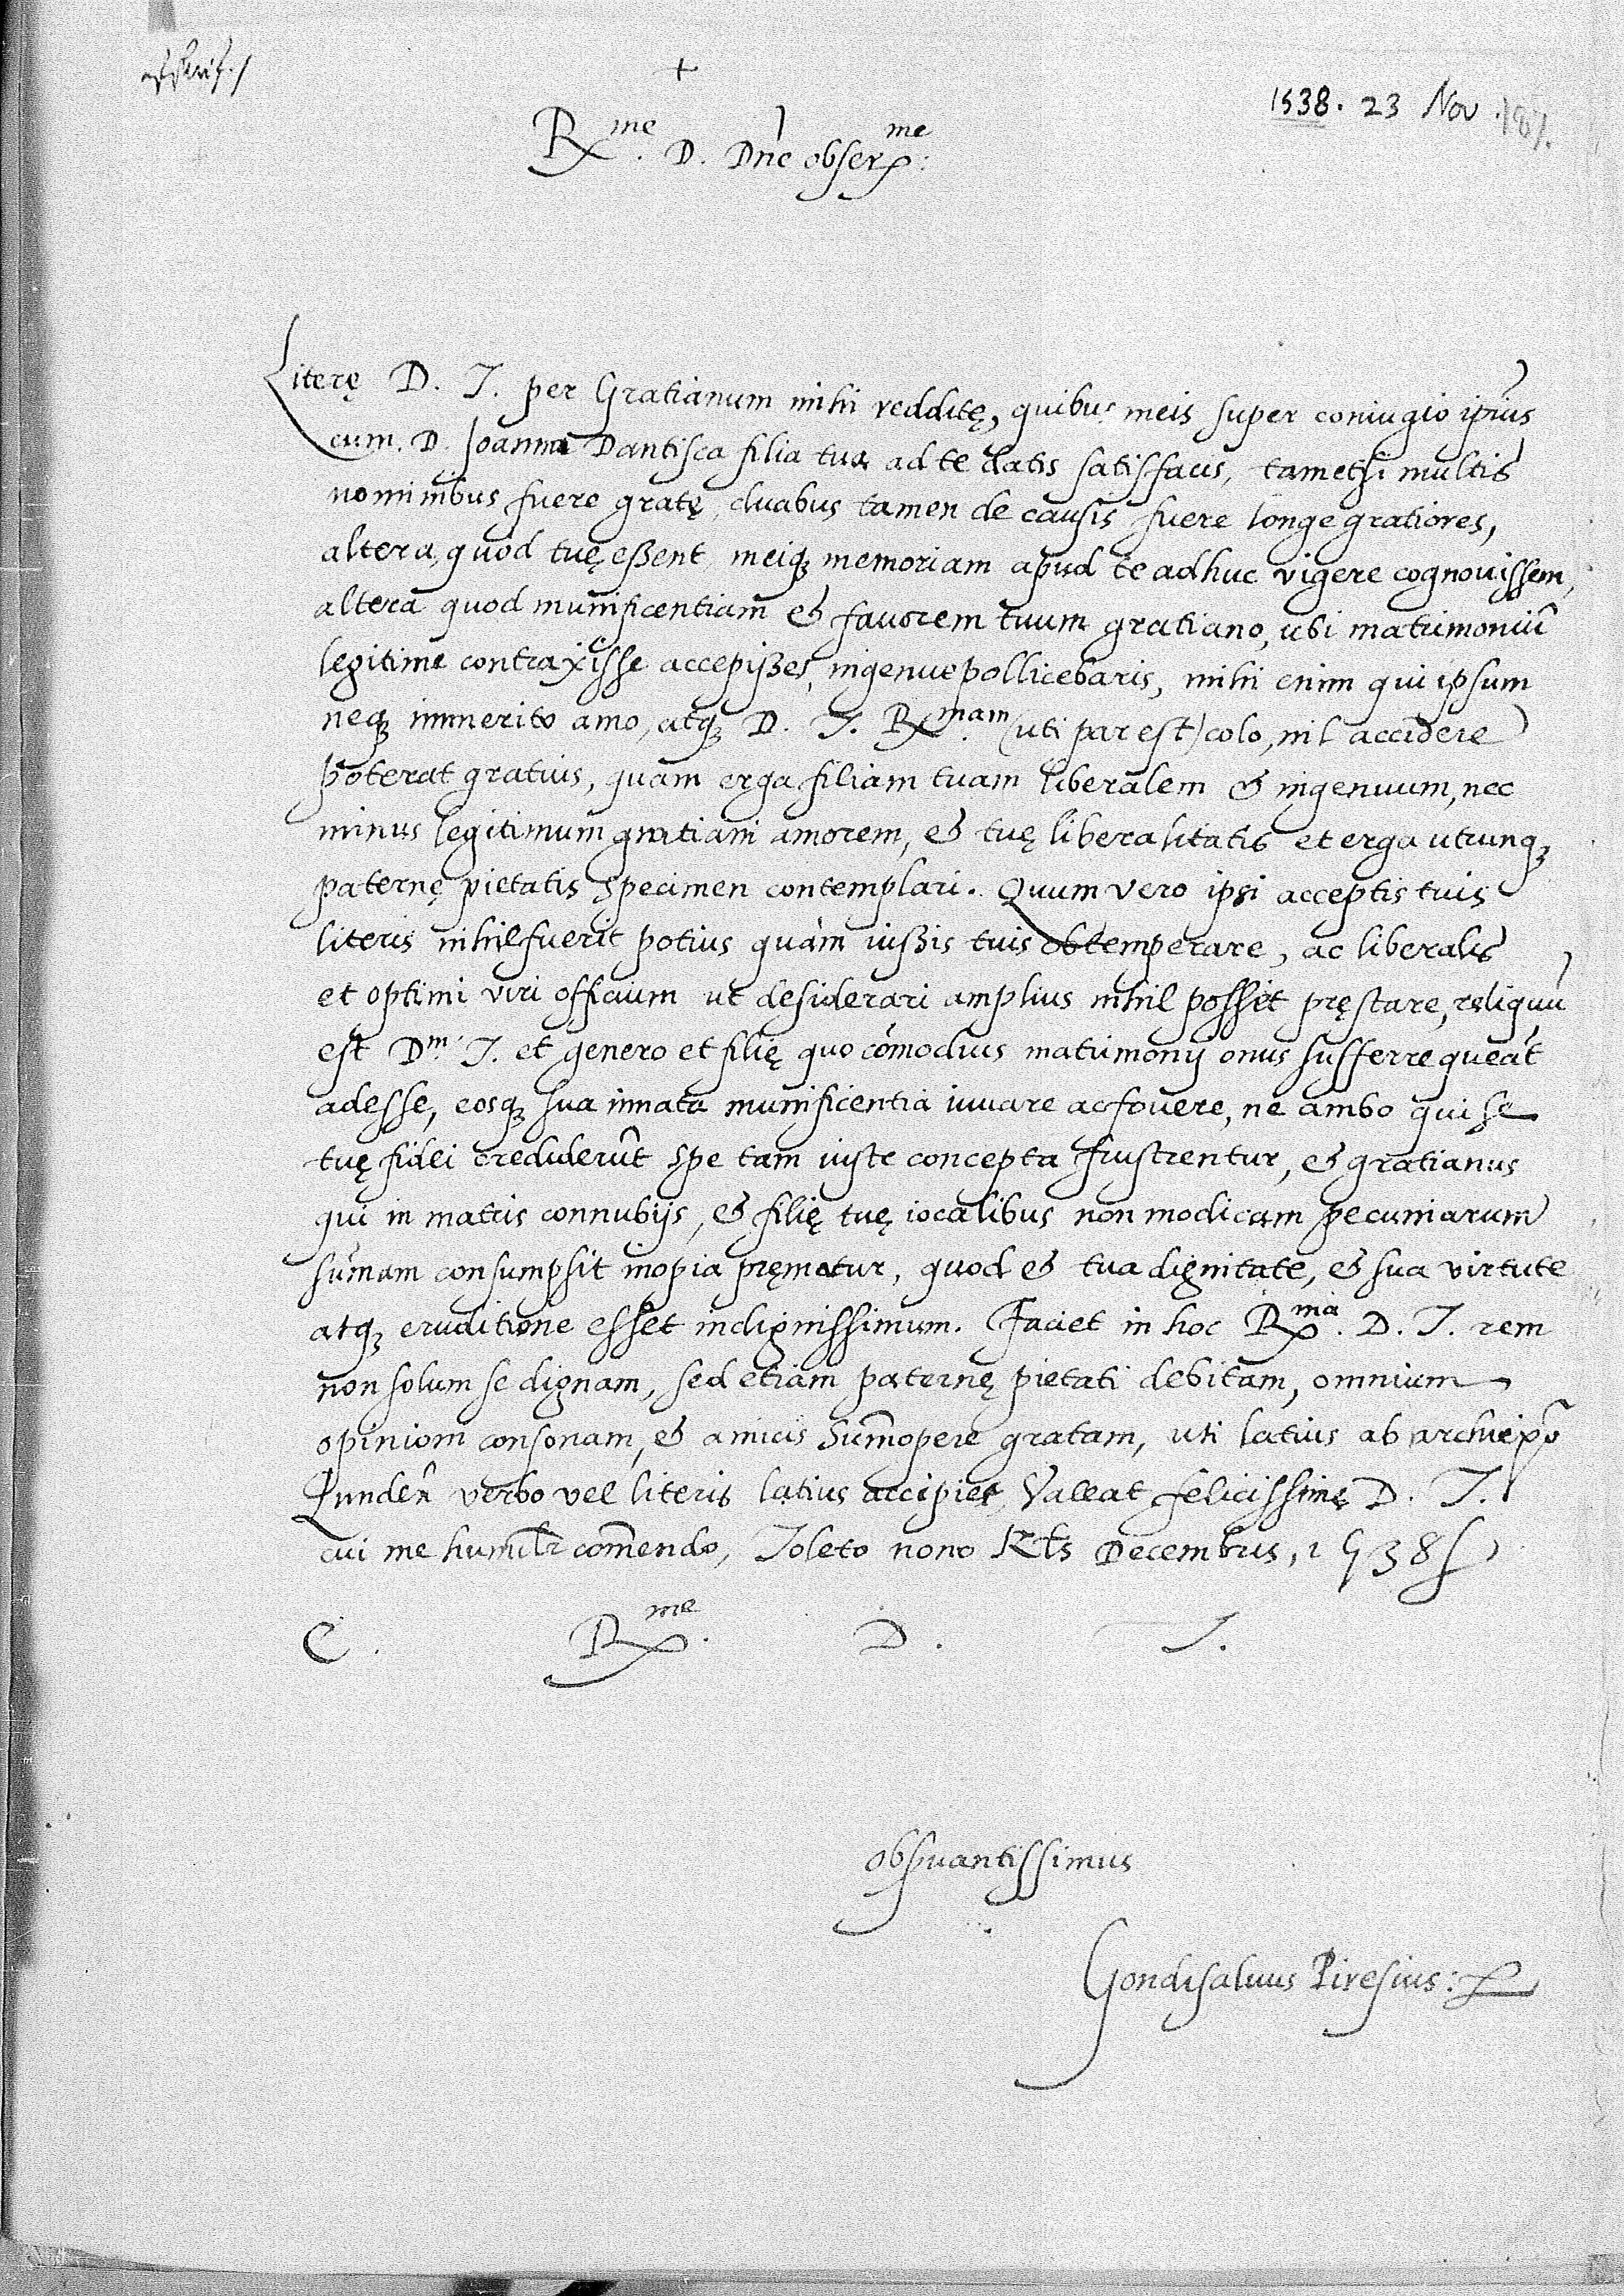 +
1538. 23 Nov.
R^me. D. Dn̄e obser^me:
Literę D. T. per Gratianum mihi redditę, quibus meis super coniugio ip̄ius
cum. D. Joanna Dantisca filia tua ad te datis satisfacis, tametsi multis
nominibus fuere gratę, duabus tamen de causis fuere longe gratiores,
altera, quod tuę essent, meiq; memoriam apud te adhuc vigere cognouissem,
altera quod munificentiam & fauorem tuum gratiano, ubi matrimoniū
legitime contraxisse accepisses, ingenue pollicebaris, mihi enim qui ipsum
neq; immerito amo, atq; D. T. R^mam. (uti par est) colo, nil accidere
poterat gratius, quam erga filiam tuam liberalem & ingenuum, nec
minus legitimum gratiani amorem, & tuę liberalitatis et erga utrunq;
paternę pietatis specimen contemplari. Quum vero ipsi acceptis tuis
literis nihil fuerit potius quàm iussis tuis obtemperare, ac liberalis
et optimi viri officium ut desiderari amplius nihil possit pręstare, reliquū
est D^m. T. et genero et filię quo cōmodius matrimonij onus sufferre queāt
adesse, eosq; sua innata munificentia iuuare ac fouere, ne ambo qui se
tuę fidei crediderūt spe tam iuste concepta frustrentur, & gratianus
qui in matris connubijs, & filię tuę iocalibus non modicam pecuniarum
sūmam consumpsit inopia pręmatur, quod & tua dignitate, & sua virtute
atq; eruditione esset indignissimum. Faciet in hoc R^ma. D. T. rem
non solum se dignam, sed etiam paternę pietati debitam, omnium
opiniom consonam, & amicis sum̄opere gratam, uti latius ab archiep̄o
Lunden̄ verbo vel literis latius accipiet, Valeat felicissime D. T.
cui me humilr̄ com̄endo, Toleto nono Kłs Decembris, 1538
C. R^me. D. T.
obsp̱uantissimus
Gondisaluus Piresius: